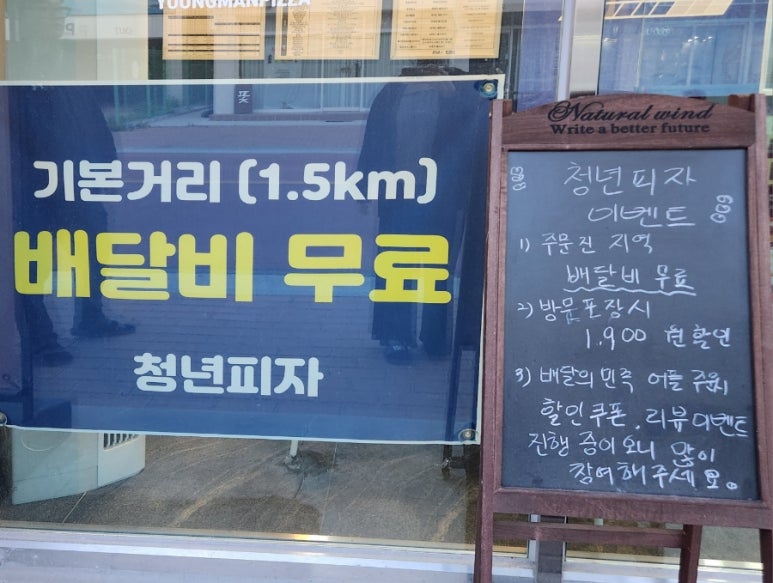 YOUNGMANPIZZA
기본거리 (1.5km)
배달비 무료
청년피자
Natural wind
Write a better future
청년피자
이벤트
1) 주문진 지역
배달비 무료
2) 방문포장시
1,900 원 할인
3) 배달의 민족 어플 주문시
할인쿠폰, 리뷰이벤트
진행 중이오니 많이
참여해주세요.